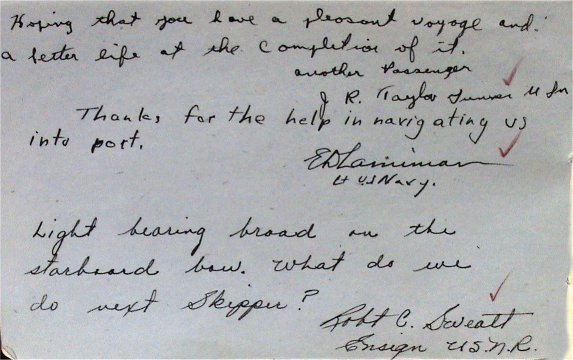 Hoping that you have a pleasant voyage and
a better life at the completion of it.
another Passenger
J R. Taylor
Thanks for the help in navigating us
into port.
Lt US Navy.
Light bearing broad on the
starboard bow. What do we
do next Skipper?
Robt C. Sweatt
Ensign U.S.N.R.